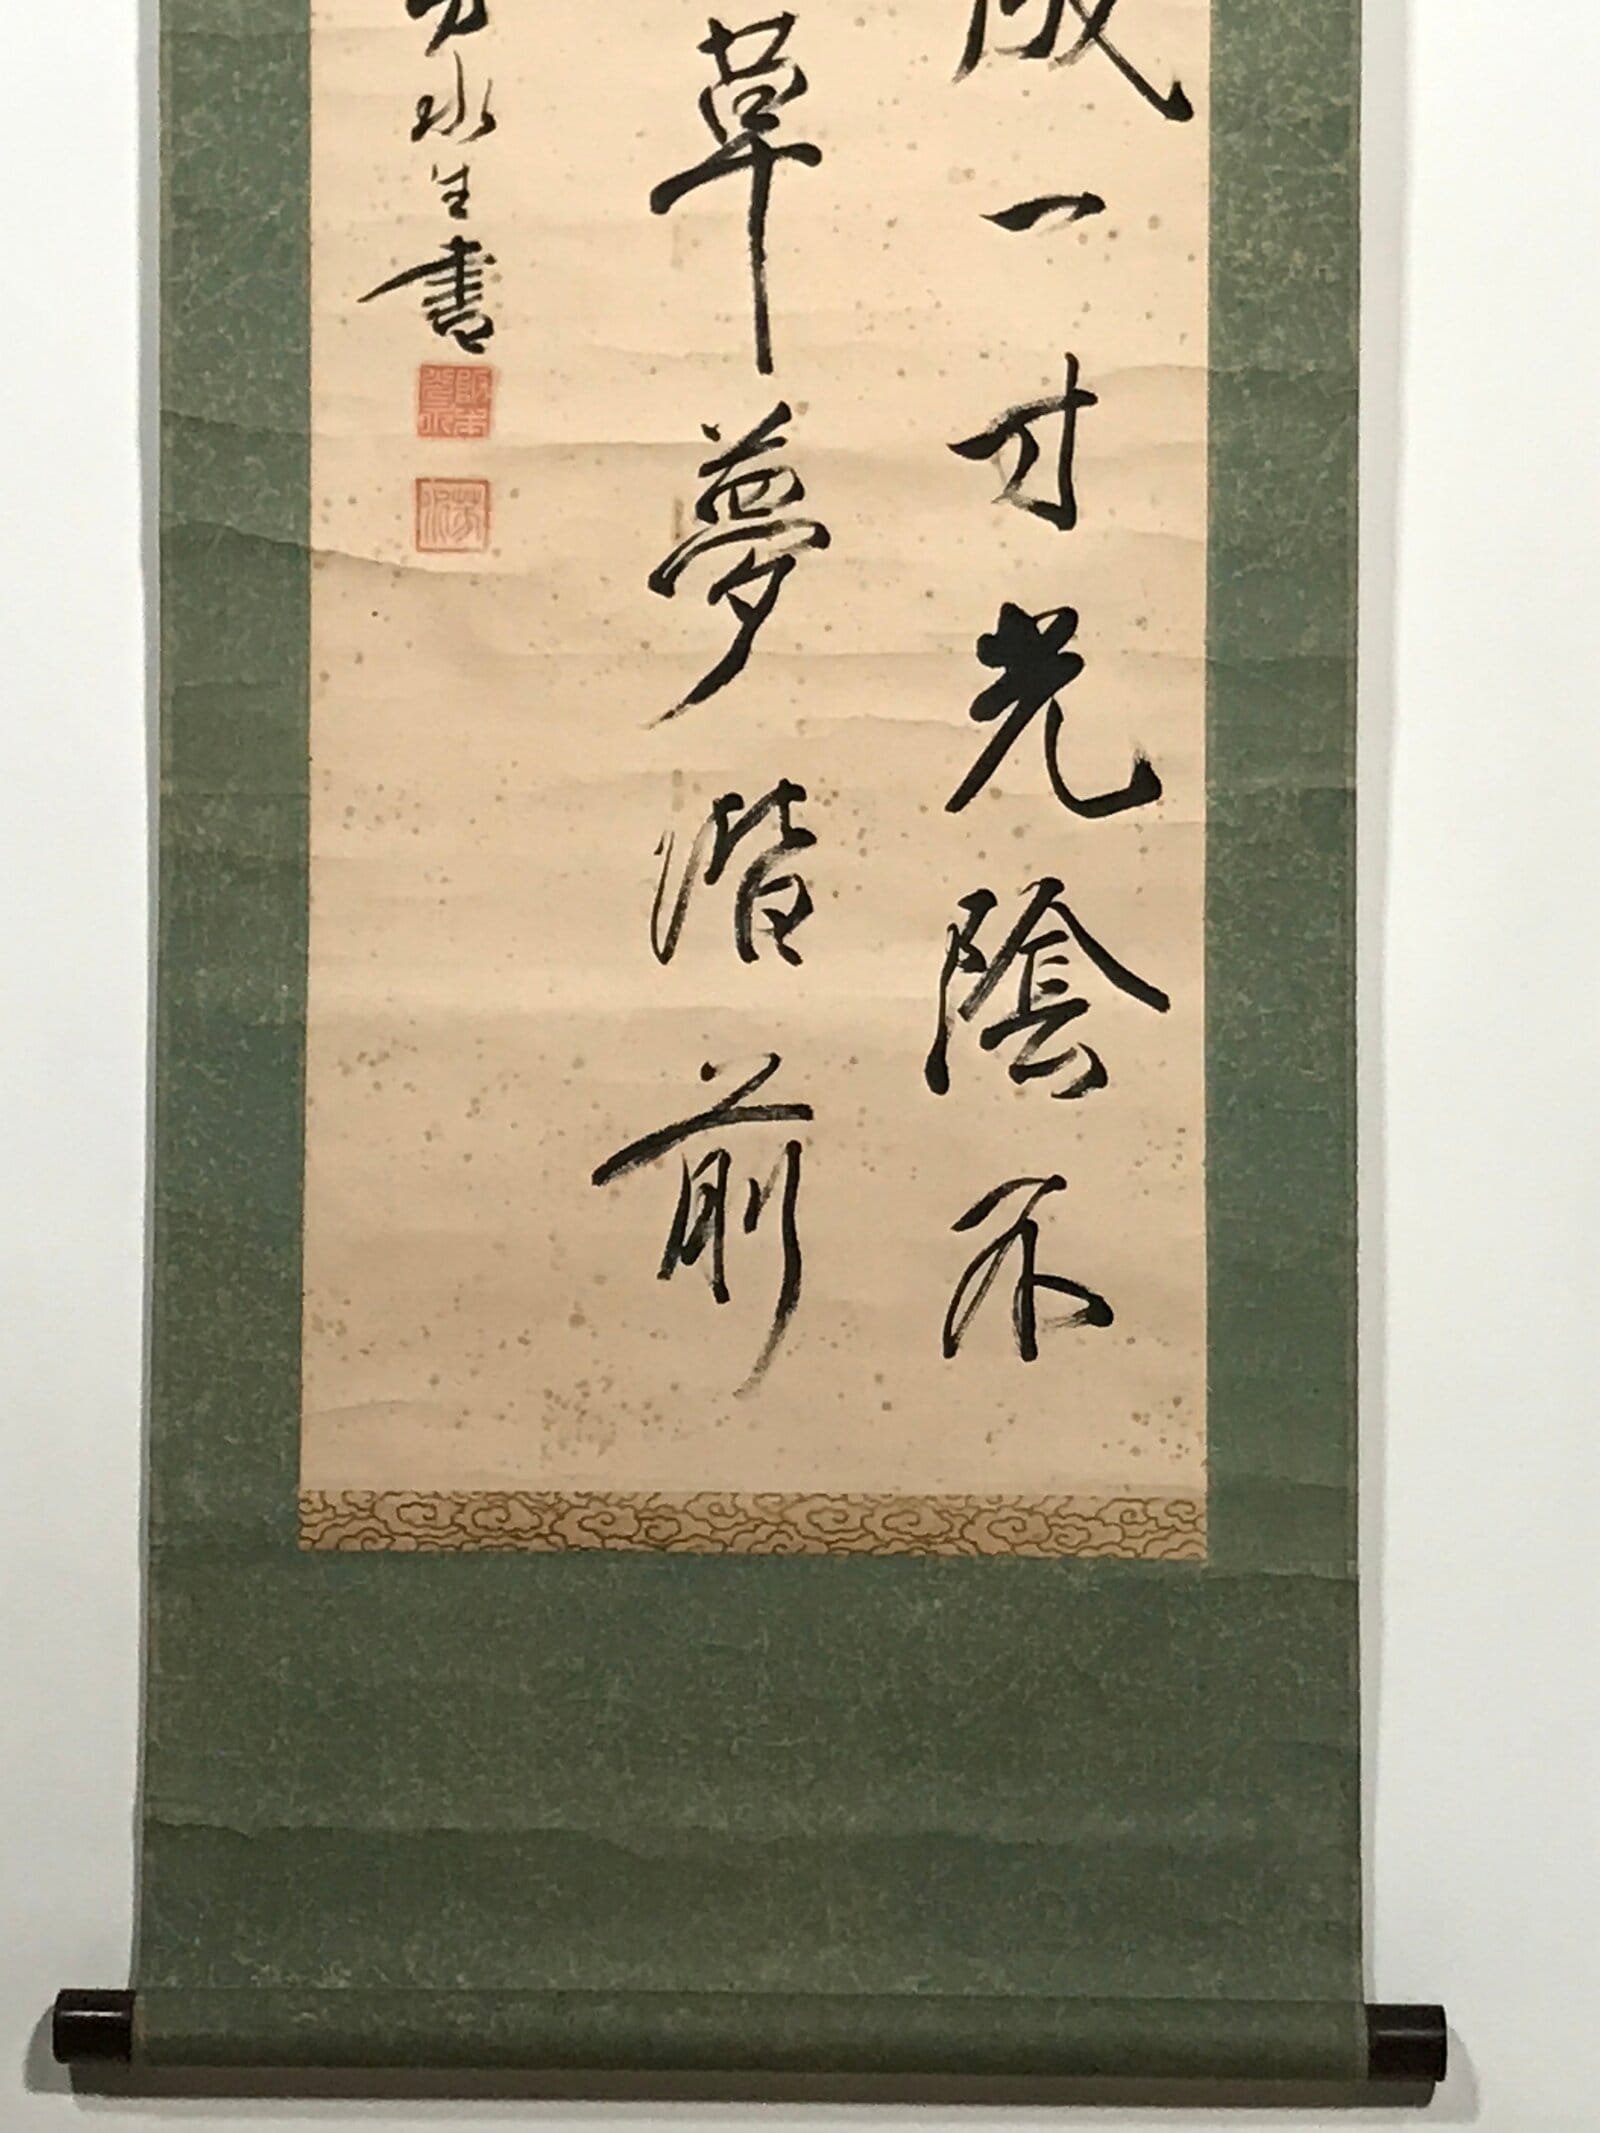 成一寸光陰不
草夢階前
水生書
芳水